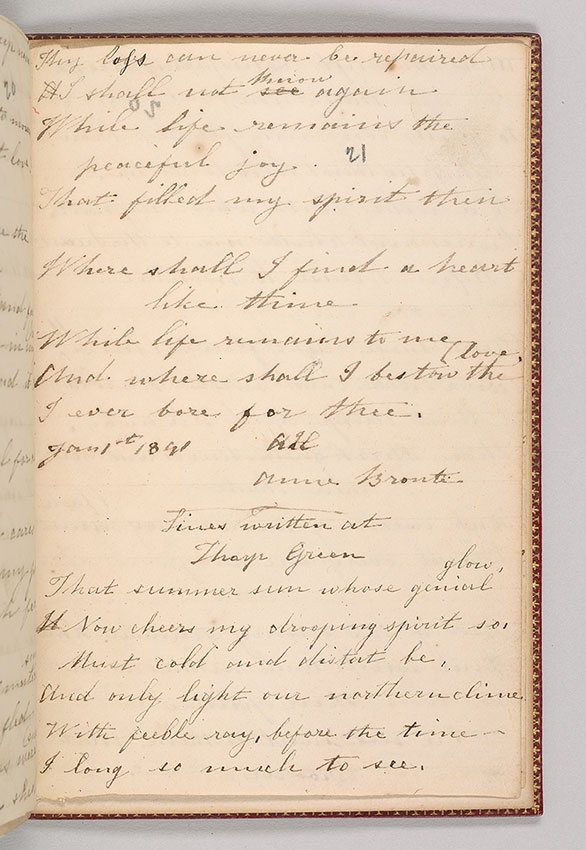 Thy loss can never be repaired
I shall not see know again
20
While life remains the
peaceful joy. 21
That filled my spirit then
Where shall I find a heart
like thine
While life remains to me
And where shall I bestow the love
I ever bore for thee.
Jan 1st 1841
Anne Brontë
Lines written at
Thorp Green
That summer sun whose genial glow,
Now cheers my drooping spirit so,
Must cold and distat be,
And only light our northern clime
With feeble ray, before the time—
I long so much to see.